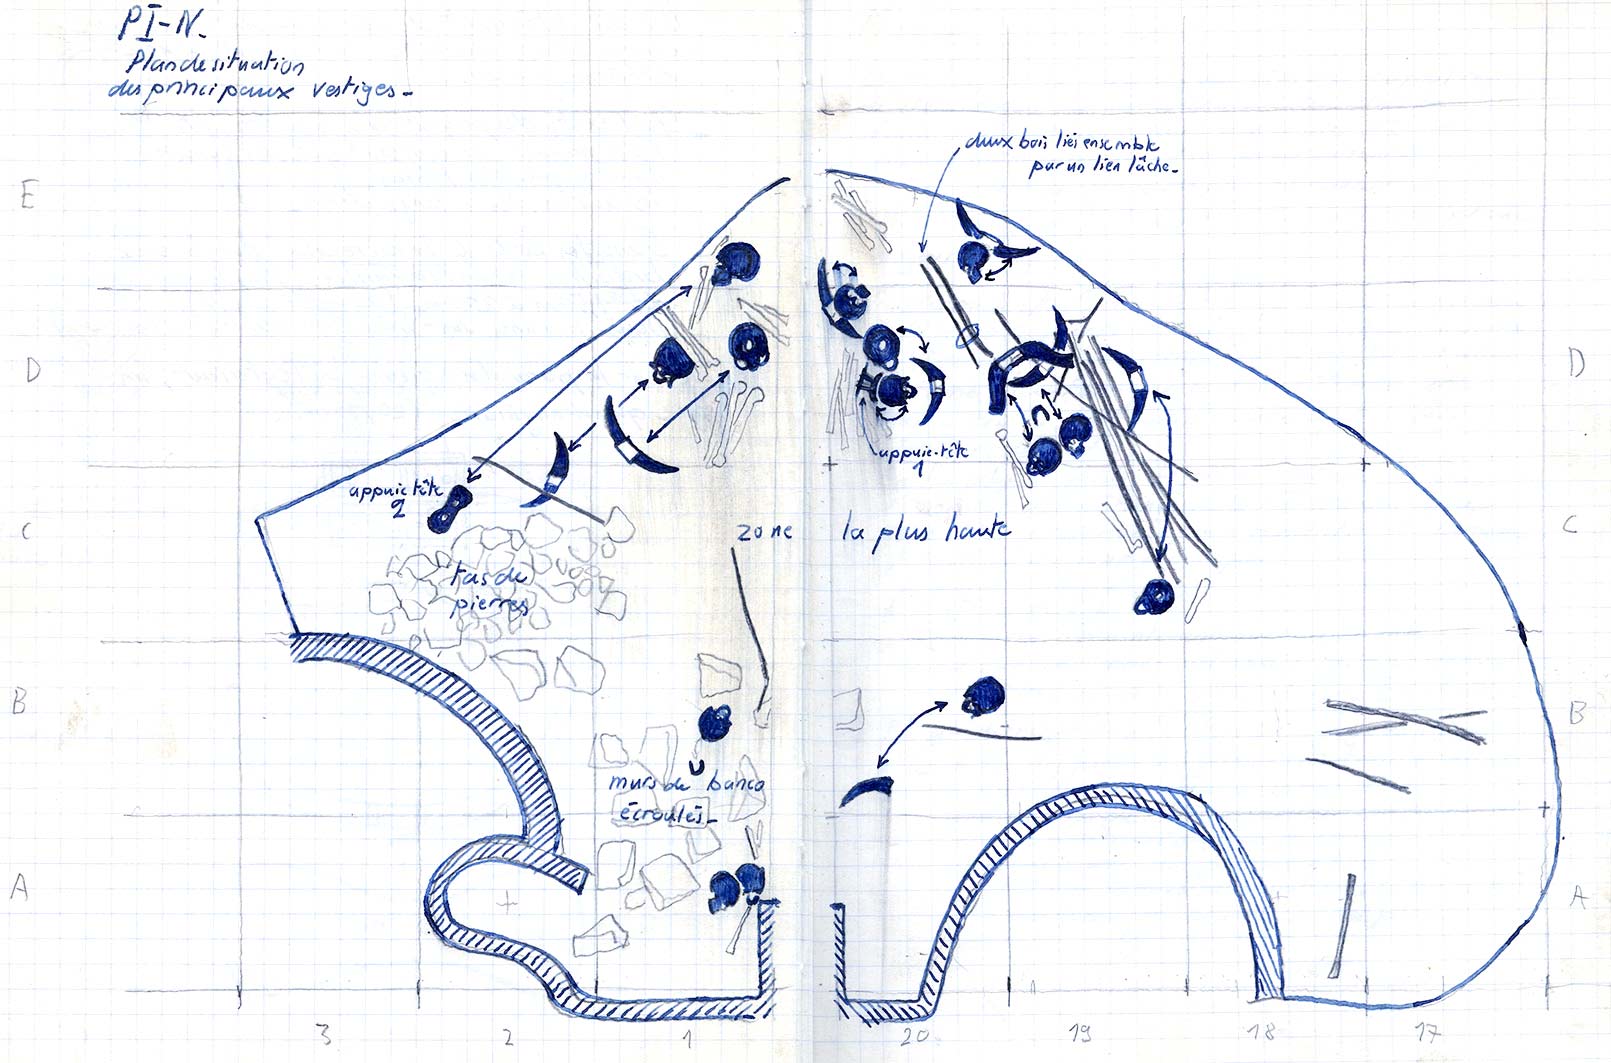 PI-N.
Plan de situation
des principaux vestiges-
deux bois liés ensemble
par un lien lâche-
E
D
D
appuie-tête
1
appuie tête
2
C
zone la plus haute
C
tas de
pierres
B
B
murs de banco
écroulés-
A
A
3 2 1 20 19 18 17